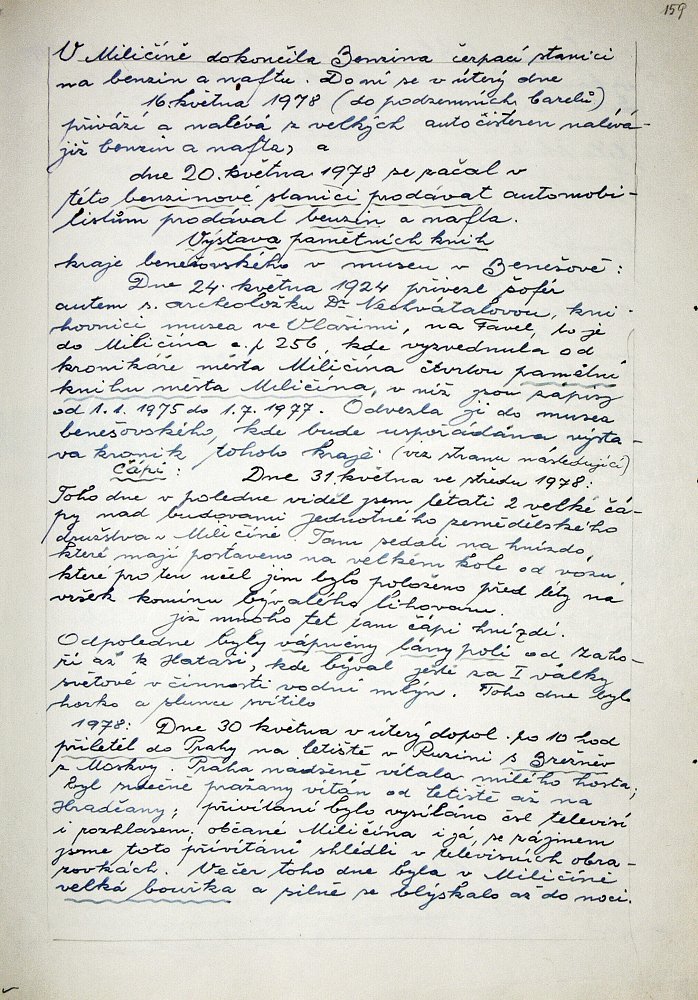 159
V Miličíně dokončila Benzina čerpací stanici
na benzin a naftu. Do ní se v úterý dne
16. května 1978 (do podzemních barelů)
přiváží a nalévá z velkých autočisteren nalévá-
již benzin a nafta, a
dne 20. května 1978 se začal v
této benzinové stanici prodávat automobi-
listům prodával benzin a nafta.
Výstava pamětních knih
kraje benešovského v museu v Benešově:
Dne 24. května 1924 přivezl šofér
autem s. archeoložku Dr Nechvátalovou, kni-
hovnici musea ve Vlašimi, na Favel, to je
do Miličína č. p 256, kde vyzvednula od
kronikáře města Miličína čtvrtou pamětní
knihu města Miličína, v níž jsou zápisy
od 1.1. 1975 do 1.7. 1977. Odvezla ji do musea
benešovského, kde bude uspořádána výsta-
va kronik tohoto kraje (viz stranu následující)
Čápi: Dne 31. května ve středu 1978:
Toho dne v poledne viděl jsem létati 2 velké čá-
py nad budovami jednotného zemědělského
družstva v Miličíně Tam sedali na hnízdo,
které mají postaveno na velkém kole od vozu,
které pro ten účel jim bylo položeno před léty na
vršek komínu bývalého lihovaru.
již mnoho let tam čápi hnízdí.
Odpoledne byly vápněny lány polí od Zaho-
ří až k Hataši, kde býval ještě za I války
světové v činnosti vodní mlýn. Toho dne bylo
horko a slunce svítilo
1978: Dne 30 května v úterý dopol. po 10 hod
přiletěl do Prahy na letiště v Ruzini s Brežněv
z Moskvy. Praha nadšeně vítala milého hosta;
byl srdečně pražany vítán od letiště až na
Hradčany; přivítání bylo vysíláno čsl televisí
i rozhlasem; občané Miličína i já, se zájmem
jsme toto přivítání shlédli v televisních obra-
zovkách. Večer toho dne byla v Miličíně
velká bouřka a silně se blýskalo až do noci.